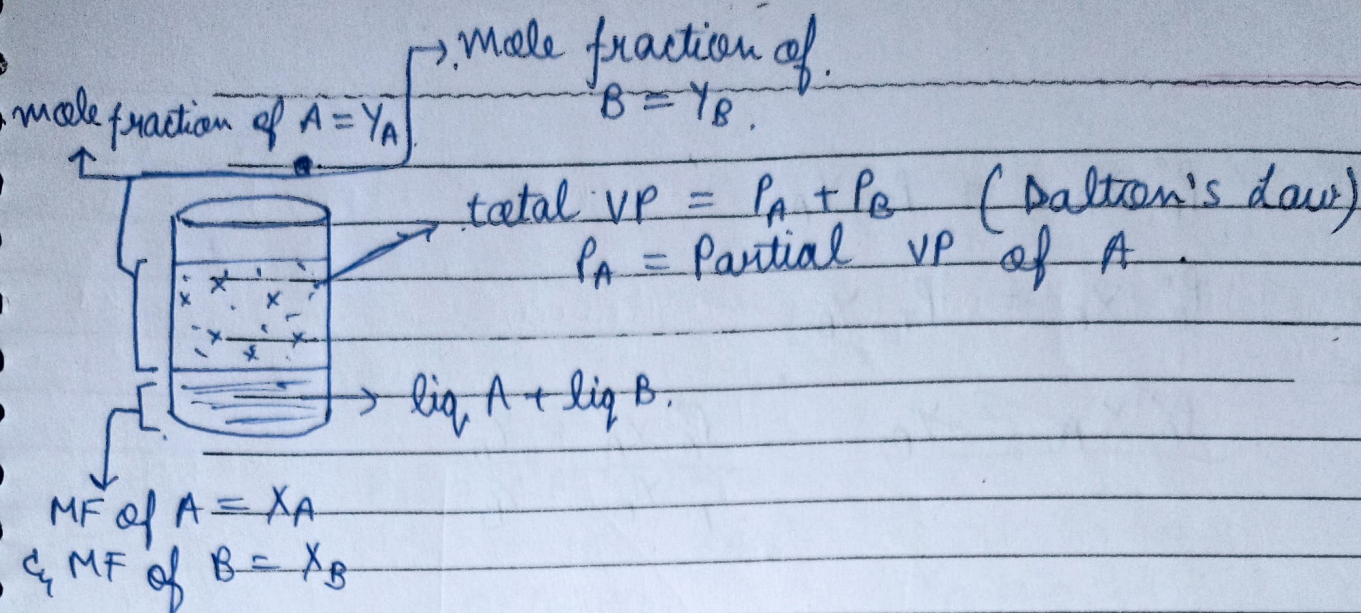 mole fraction of
B = YB.
mole fraction of A = YA
total VP = PA + PB (Dalton's Law)
PA = Partial VP of A.
liq A + liq B.
MF of A = XA
& MF of B = XB